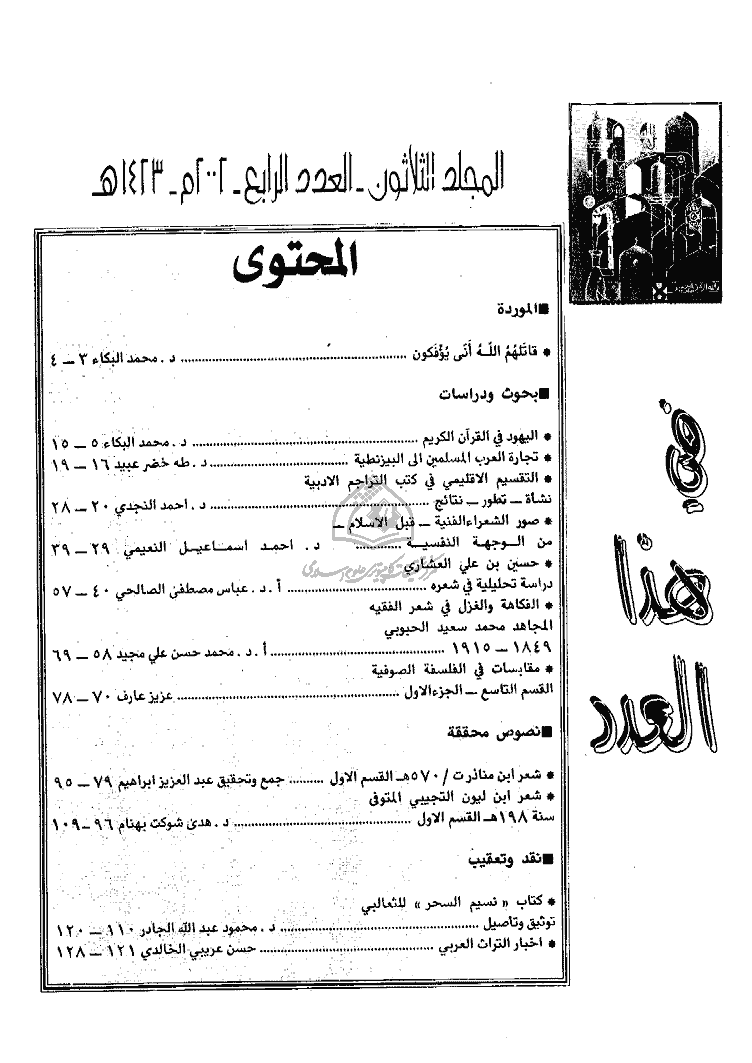 المجلد الثلاثون ـ العدد الرابع ـ ٢٠٠٢م ـ ١٤٢٣هـ
في
هذا
العدد
المحتوى
■ الموردة
* قاتَلهُمُ اللَّـهُ أنّى يُؤْفَكون ........ د. محمد البكاء ٣ ــ ٤
■ بحوث ودراسات
* اليهود في القرآن الكريم ........ د. محمد البكاء ٥ ــ ١٥
* تجارة العرب المسلمين الى البيزنطية ........ د. طه خضر عبيد ١٦ ــ ١٩
* التقسيم الاقليمي في كتب التراجم الادبية
نشاة ــ تطور ــ نتائج ........ د. احمد النجدي ٢٠ ــ ٢٨
* صور الشعراءالفنية ــ قبل الاسلام ــ
من الـوجهة النفسيـة ........ د. احمد اسماعيل النعيمي ٢٩ ــ ٣٩
* حسين بن علي العشاري
دراسة تحليلية في شعره ........ أ.د. عباس مصطفى الصالحي ٤٠ ــ ٥٧
* الفكاهة والغزل في شعر الفقيه
المجاهد محمد سعيد الحبوبي
١٨٤٩ ــ ١٩١٥ ........ أ.د. محمد حسن علي مجيد ٥٨ ــ ٦٩
* مقابسات في الفلسفة الصوفية
القسم التاسع ــ الجزءالاول ........ عزيز عارف ٧٠ ــ ٧٨
■ نصوص محققة
* شعر ابن مناذر ت / ٥٧٠هـ القسم الاول ........ جمع وتحقيق عبد العزيز ابراهيم ٧٩ ــ ٩٥
* شعر ابن ليون التجيبي المتوفى
سنة ١٩٨هـ القسم الاول ........ د. هدى شوكت بهنام ٩٦ ــ ١٠٩
■ نقد وتعقيب
* كتاب « نسيم السحر » للثعالبي
توثيق وتاصيل ........ د. محمود عبد الله الجادر ١١٠ ــ ١٢٠
* اخبار التراث العربي ........ حسن عريبي الخالدي ١٢١ ــ ١٢٨